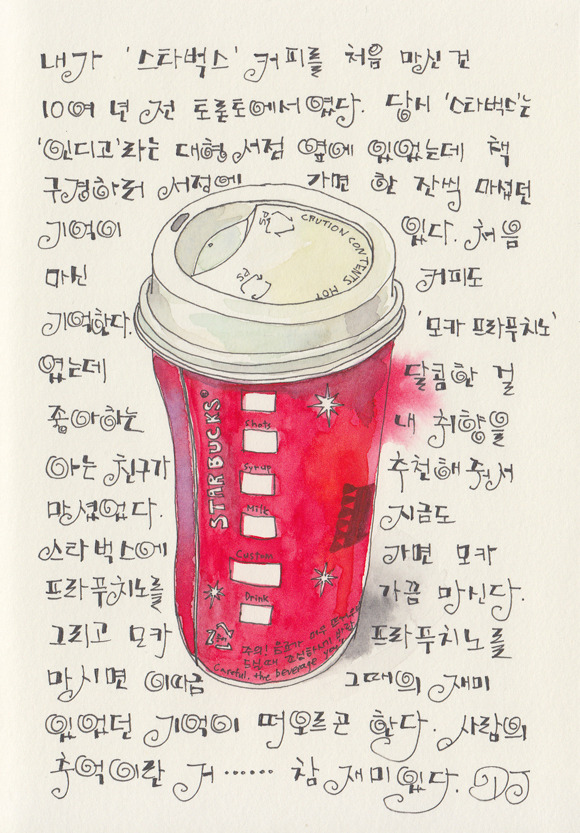 내가 '스타벅스' 커피를 처음 마신 건
10여 년 전 토론토에서였다. 당시 '스타벅스'는
'인디고'라는 대형 서점 옆에 있었는데 책
구경하러 서점에 가면 한 잔씩 마셨던
기억이 있다. 처음
마신 커피도
기억한다. '모카 프라푸치노'
였는데 달콤한 걸
좋아하는 내 취향을
아는 친구가 추천해줘서
마셨었다. 지금도
스타벅스에 가면 모카
프라푸치노를 가끔 마신다.
그리고 모카 프라푸치노를
마시면 이따금 그때의 재미
있었던 기억이 떠오르곤 한다. 사람의
추억이란 거 ...... 참 재미있다. DJ
CAUTION CONTENTS HOT
PS
PS
STARBUCKS®
Shots
Syrup
Milk
Custom
Drink
주의! 음료가 매우
드실 때 조심하시기 바랍
Careful, the beverage you're